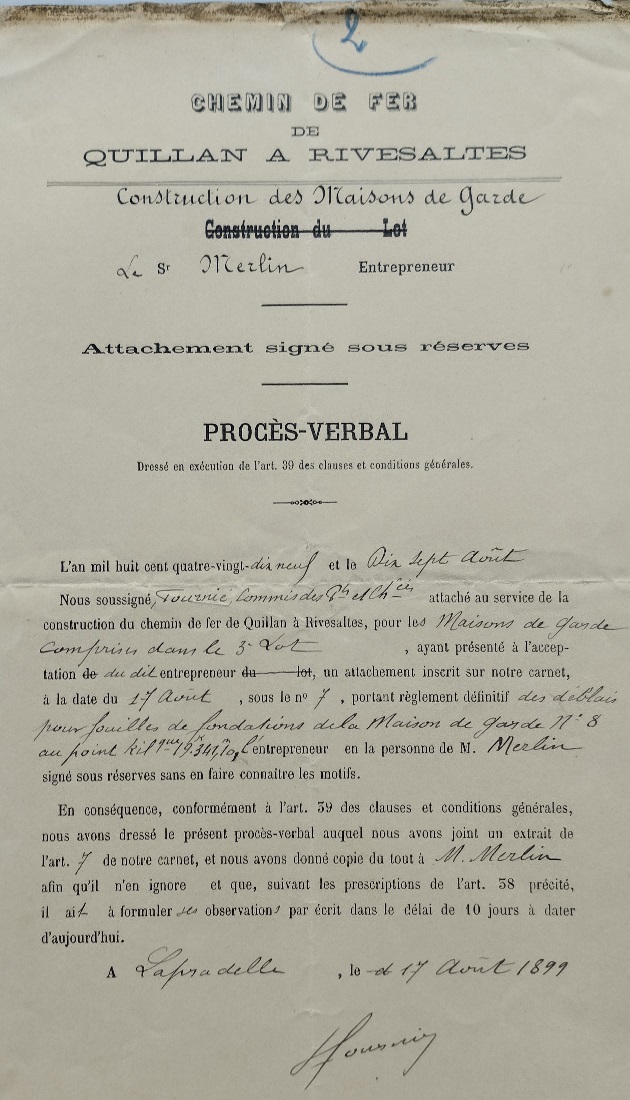 2
CHEMIN DE FER
DE
QUILLAN A RIVESALTES
Construction des Maisons de Garde
Construction du Lot
Le Sr Merlin Entrepreneur
Attachement signé sous réserves
PROCÈS-VERBAL
Dressé en exécution de l'art. 39 des clauses et conditions générales.
L'an mil huit cent quatre-vingt-dix neuf et le Dix sept Août
Nous soussigné, Commis des Pts et Chées attaché au service de la
construction du chemin de fer de Quillan à Rivesaltes, pour les Maisons de garde
comprises dans le 3e Lot, ayant présenté à l'accep-
tation de du dit entrepreneur du lot, un attachement inscrit sur notre carnet,
à la date du 17 Août, sous le no 7, portant règlement définitif des déblais
pour fouilles de fondations de la Maison de garde No 8
au point kilque l'entrepreneur en la personne de M. Merlin
signé sous réserves sans en faire connaître les motifs.
En conséquence, conformément à l'art. 39 des clauses et conditions générales,
nous avons dressé le présent procès-verbal auquel nous avons joint un extrait de
l'art. 7 de notre carnet, et nous avons donné copie du tout à M. Merlin
afin qu'il n'en ignore et que, suivant les prescriptions de l'art. 38 précité,
il ait à formuler ses observations par écrit dans le délai de 10 jours à dater
d'aujourd'hui.
A Lapradelle, le 17 Août 1899